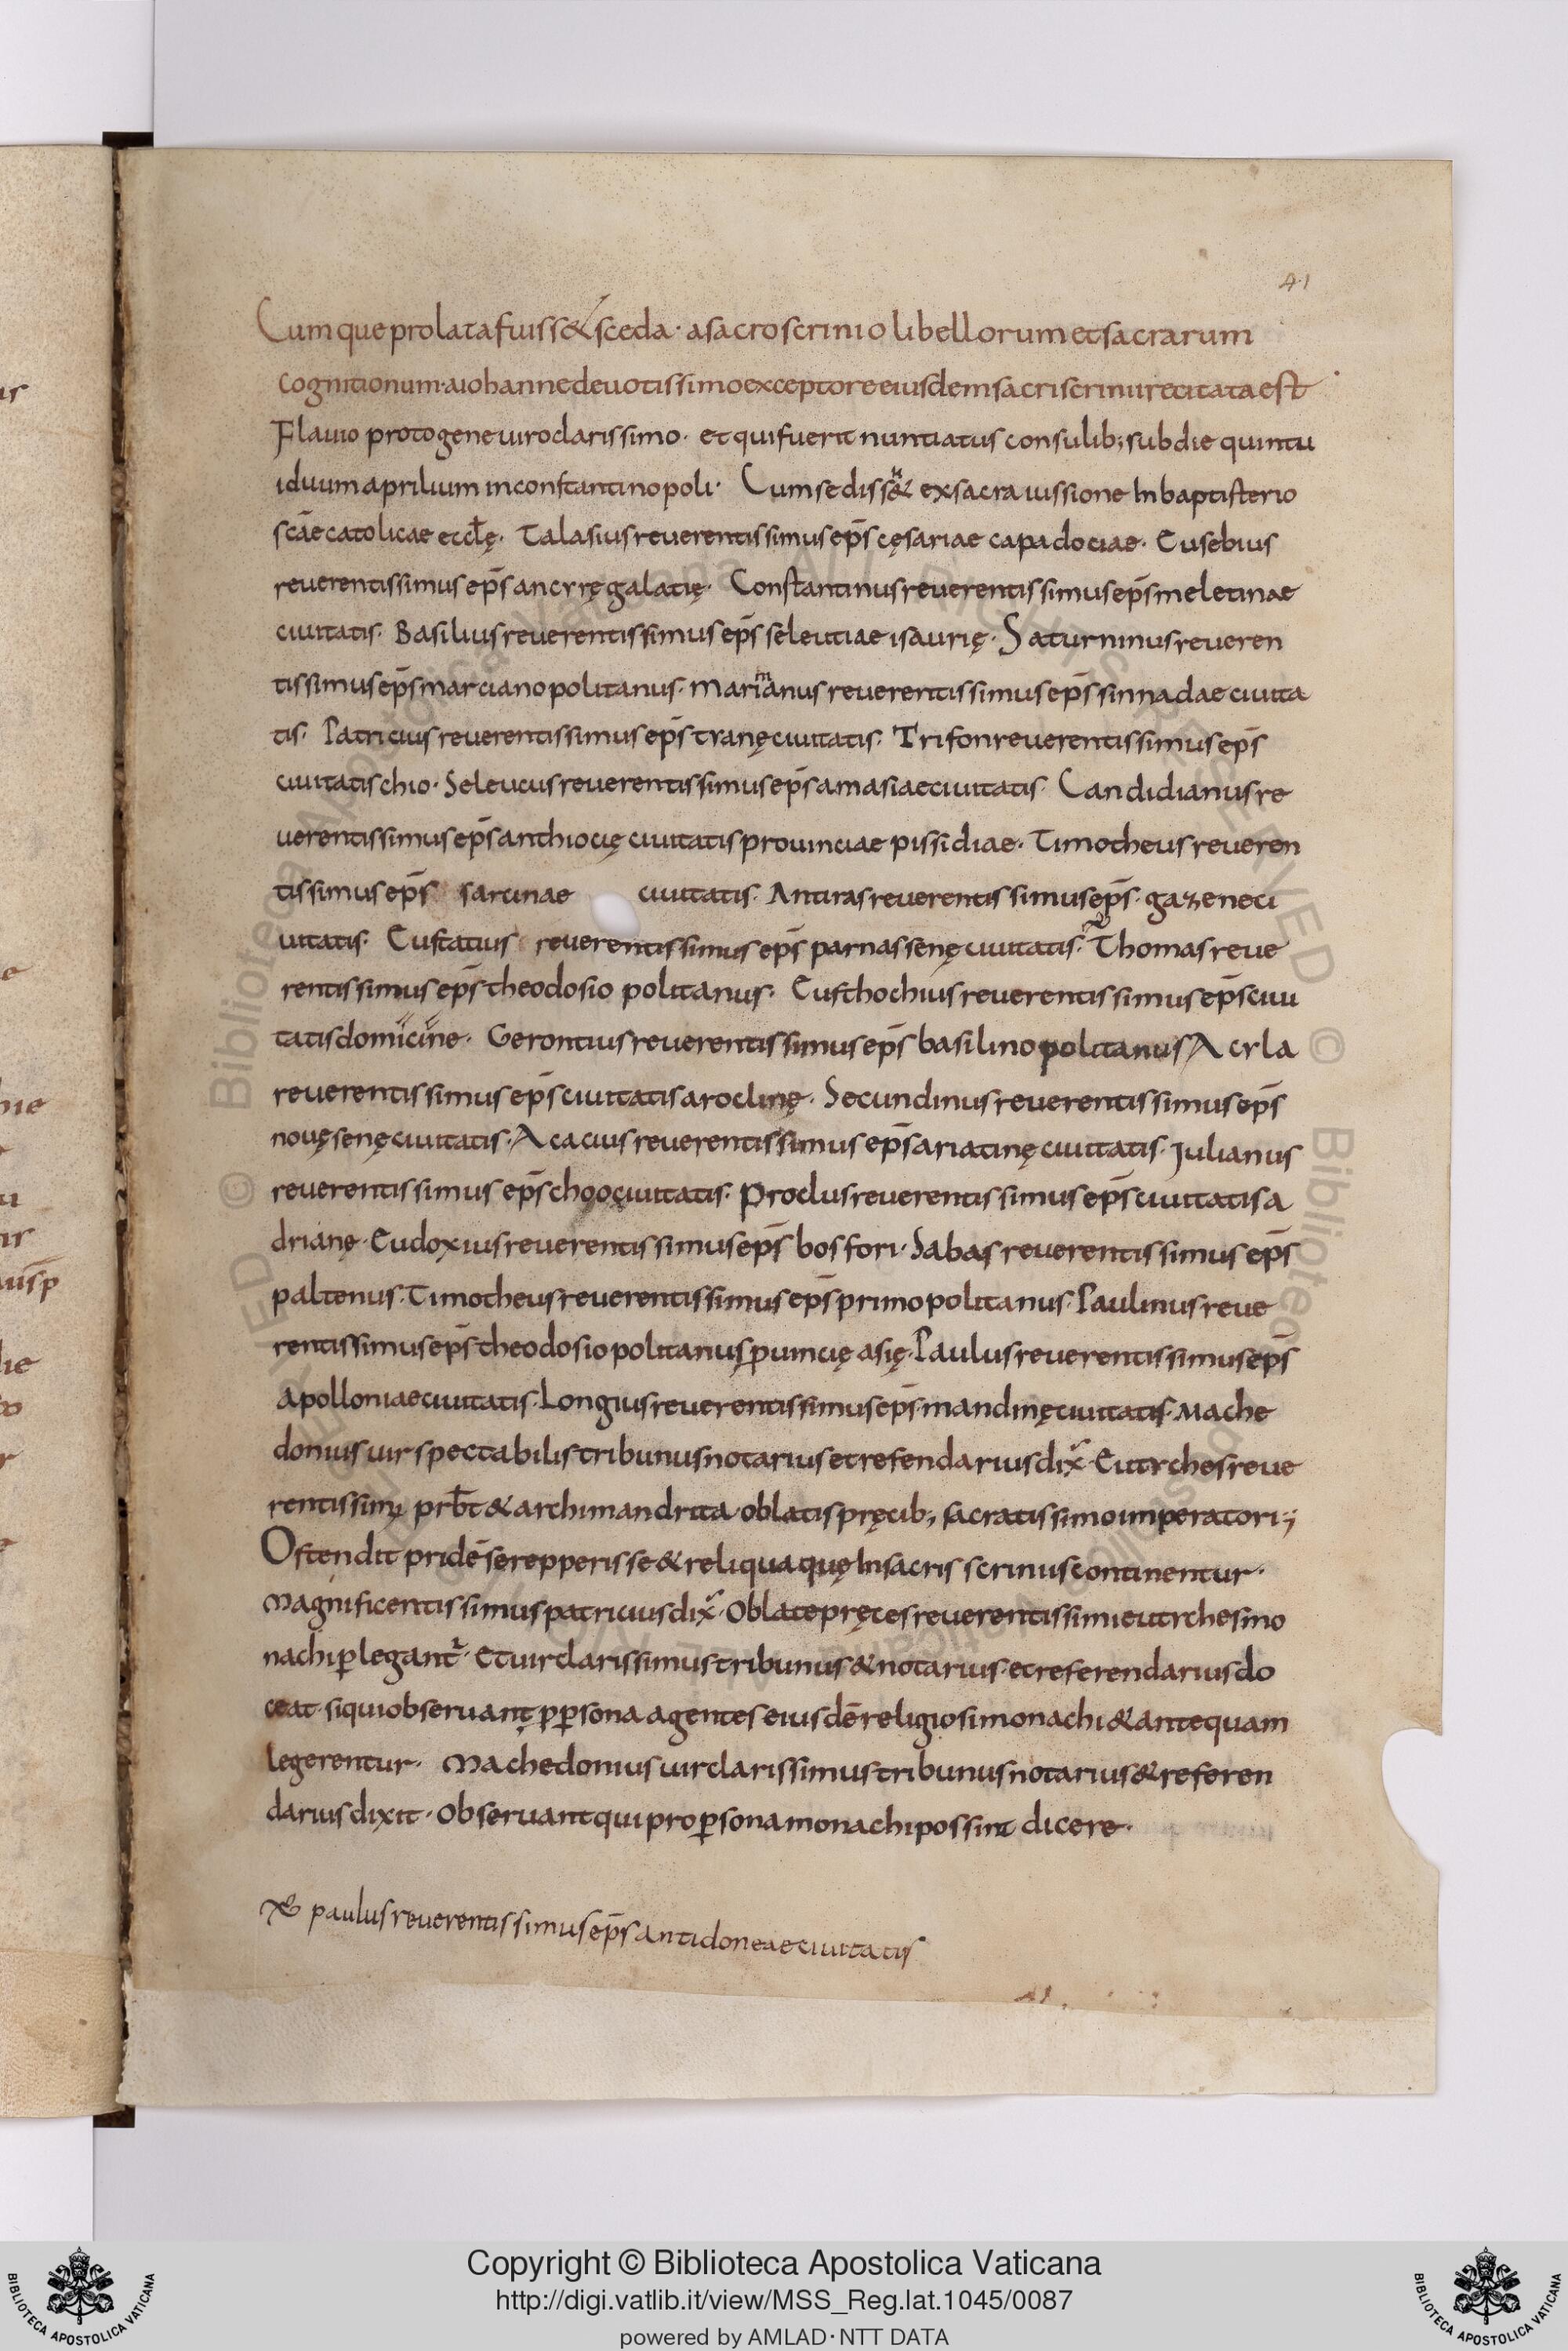 41
Cumque prolata fuiss& sceda · a sacro scrinio libellorum et sacrarum
cognitionum · a iohanne deuotissimo exceptore eiusdem sacri scrinii recitata est
Flauio protogene uiro clarissimo · et qui fuerit nuntiatus consulib; sub die quintu
iduum aprilium in constantinopoli · Cum sediss& ex sacra iussione In baptisterio
scāe catolicae eccłę · Talasius reuerentissimus ep̄s cęsariae capadociae · Eusebius
reuerentissimus ep̄s ancyrę galatię · Constantinus reuerentissimus ep̄s meletinae
ciuitatis · Basilius reuerentissimus ep̄s seleutiae isaurię · Saturninus reueren
tissimus ep̄s marcianopolitanus · Marinianus reuerentissimus ep̄s sinnadae ciuita
tis · Patricius reuerentissimus ep̄s tyanę ciuitatis · Trifon reuerentissimus ep̄s
ciuitatis chio · Seleucus reuerentissimus ep̄s amasiae ciuitatis · Candidianus re
uerentissimus ep̄s anthiocię ciuitatis prouinciae pissidiae · Timotheus reueren
tissimus ep̄s sarcinae ciuitatis · Antiras reuerentissimus ep̄s · gazene ci
uitatis · Eustatius reuerentissimus ep̄s parnassenę ciuitatis · Thomas reue
rentissimus ep̄s theodosio politanus · Eusthochius reuerentissimus ep̄s ciui
tatis domicine · Gerontius reuerentissimus ep̄s basilinopolitanus Acyla
reuerentissimus ep̄s ciuitatis aroclinę · Secundinus reuerentissimus ep̄s
nouęsenę ciuitatis · Acacius reuerentissimus ep̄s ariatinę ciuitatis · Julianus
reuerentissimus ep̄s choo ciuitatis · Proclus reuerentissimus ep̄s ciuitatis a
drianę · Eudoxius reuerentissimus ep̄s bosfori · Sabas reuerentissimus ep̄s
paltenus · Timotheus reuerentissimus ep̄s primopolitanus · Paulinus reue
rentissimus ep̄s theodosiopolitanus ꝓuincię asię · Paulus reuerentissimus ep̄s
Apolloniae ciuitatis · Longius reuerentissimus ep̄s · mandinę ciuitatis · Mache
donius uir spectabilis tribunus notarius et refendarius dix̄ · Eutyches reue
rentissimꝰ prb̄t & archimandrita · oblatis pręcib; sacratissimo imperatori;
Ostendit pridē se repperisse & reliqua quę In sacris scriniis continentur ·
Magnificentissimus patricius dix̄ · Oblate pręces reuerentissimi eutychesmo
nachi ꝑlegant᷑ · Et uir clarissimus tribunus & notarius · et referendarius do
ceat · si qui obseruant ꝓ ꝑsona agentes eiusdē religiosi monachi & antequam
legerentur · Machedonius uir clarissimus tribunus notarius & referen
darius dixit · Obseruant qui pro ꝑsona monachi possint dicere ·
paulus reuerentissimus ep̄s antidoneae ciuitatis
Copyright © Biblioteca Apostolica Vaticana
http://digi.vatlib.it/view/MSS_Reg.lat.1045/0087
powered by AMLAD · NTT DATA
BIBLIOTECA APOSTOLICA VATICANA
BIBLIOTECA APOSTOLICA VATICANA